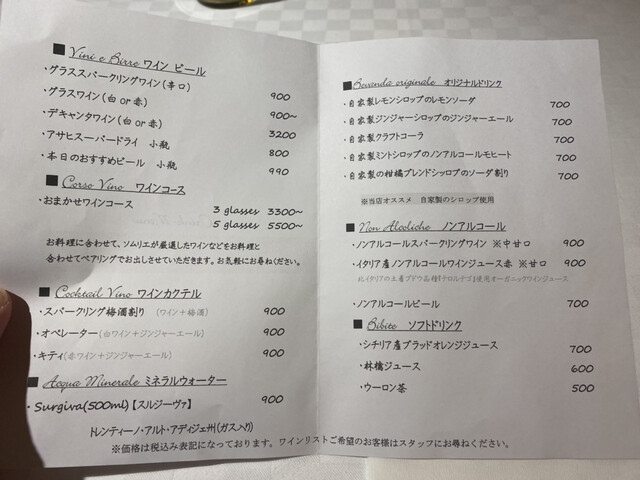 ■ Vini e Birre ワイン ビール
・グラススパークリングワイン(辛口) 900
・グラスワイン(白or赤) 900~
・デキャンタワイン(白or赤) 3200
・アサヒスーパードライ 小瓶 800
・本日のおすすめビール 小瓶 990
■ Corso Vino ワインコース
・おまかせワインコース 3 glasses 3300~
5 glasses 5500~
お料理に合わせて、ソムリエが厳選したワインなどをお料理と
合わせてペアリングでお出しさせていただきます。お気軽にお尋ねください。
■ Cocktail Vino ワインカクテル
・スパークリング梅酒割り (ワイン+梅酒) 900
・オペレーター(白ワイン+ジンジャーエール) 900
・キティ(赤ワイン+ジンジャーエール) 900
■ Acqua Minerale ミネラルウォーター
・Surgiva(500ml)【スルジーヴァ】 900
トレンティーノ・アルト・アディジェ州(ガス入り)
■ Bevanda originale オリジナルドリンク
・自家製レモンシロップのレモンソーダ 700
・自家製ジンジャーシロップのジンジャーエール 700
・自家製クラフトコーラ 700
・自家製ミントシロップのノンアルコールモヒート 700
・自家製の柑橘ブレンドシャロップのソーダ割り 700
※当店オススメ 自家製のシロップ使用
■ Non Alcoliche ノンアルコール
・ノンアルコールスパークリングワイン ※中甘口 900
・イタリア産ノンアルコールワインジュース赤 ※甘口 900
北イタリアの土着ブドウ品種『テロルデゴ』使用オーガニックワインジュース
・ノンアルコールビール 700
■ Bibite ソフトドリンク
・シチリア産ブラッドオレンジジュース 700
・林檎ジュース 600
・ウーロン茶 500
※価格は税込み表記になっております。ワインリストご希望のお客様はスタッフにお尋ねください。